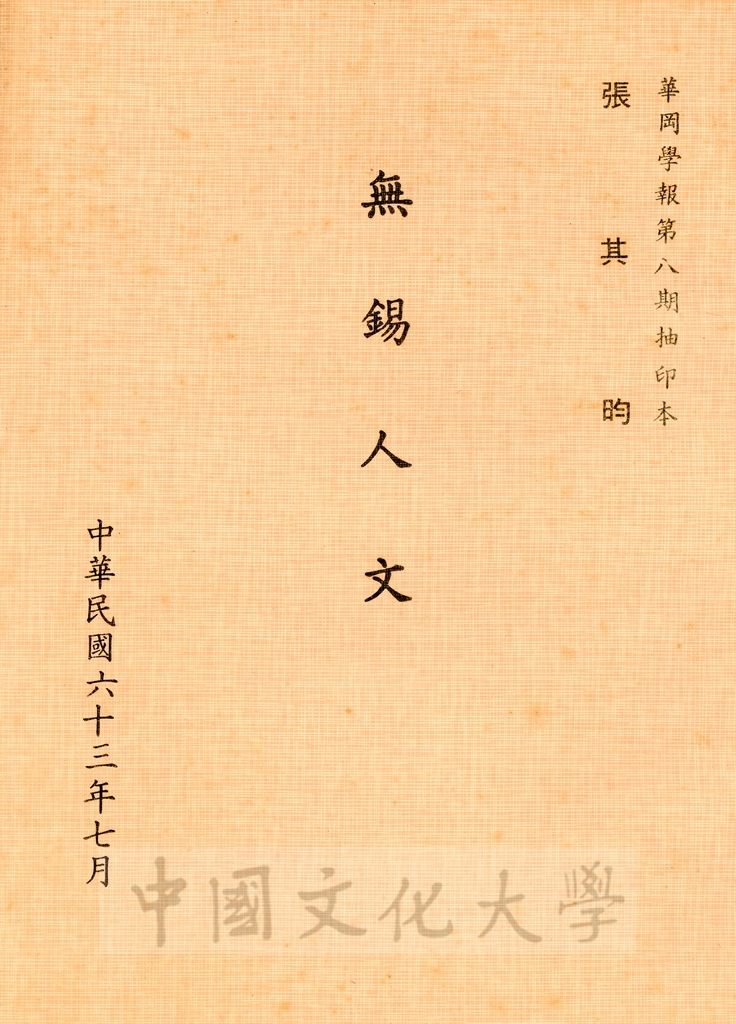 華岡學報第八期抽印本
張其昀
無錫人文
中華民國六十三年七月
中國文化大學